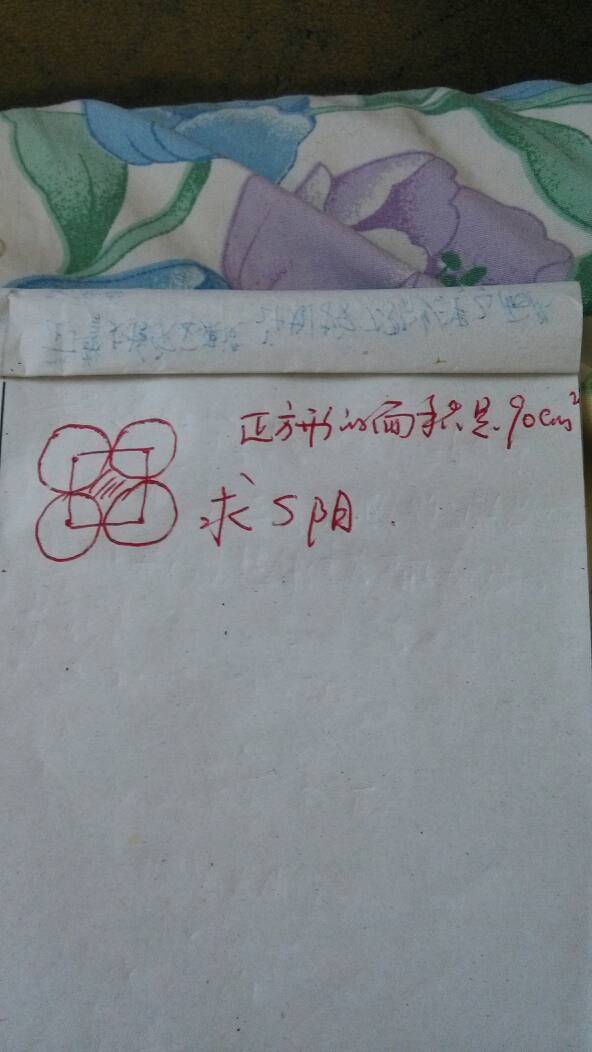 正方形的面积是90cm²
求S阴.